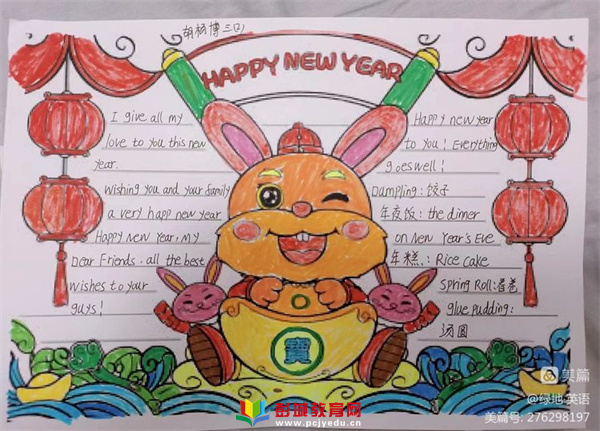 胡杨博 三(2)
HAPPY NEW YEAR
I give all my
love to you this new
year.
Wishing you and your family
a very happ new year
Happy New Year, my
Dear Friends. all the best
wishes to your
guys!
Happy new year
to you! Everything
goes well!
Dampling: 饺子
年夜饭: the dinner
on New Year's Eve
年糕: Rice cake
Spring Roll: 春卷
glue pudding:
汤圆
寶
彭城教育网
www.pcjyedu.cn
美篇
@绿地 英语
美篇号: 276298197